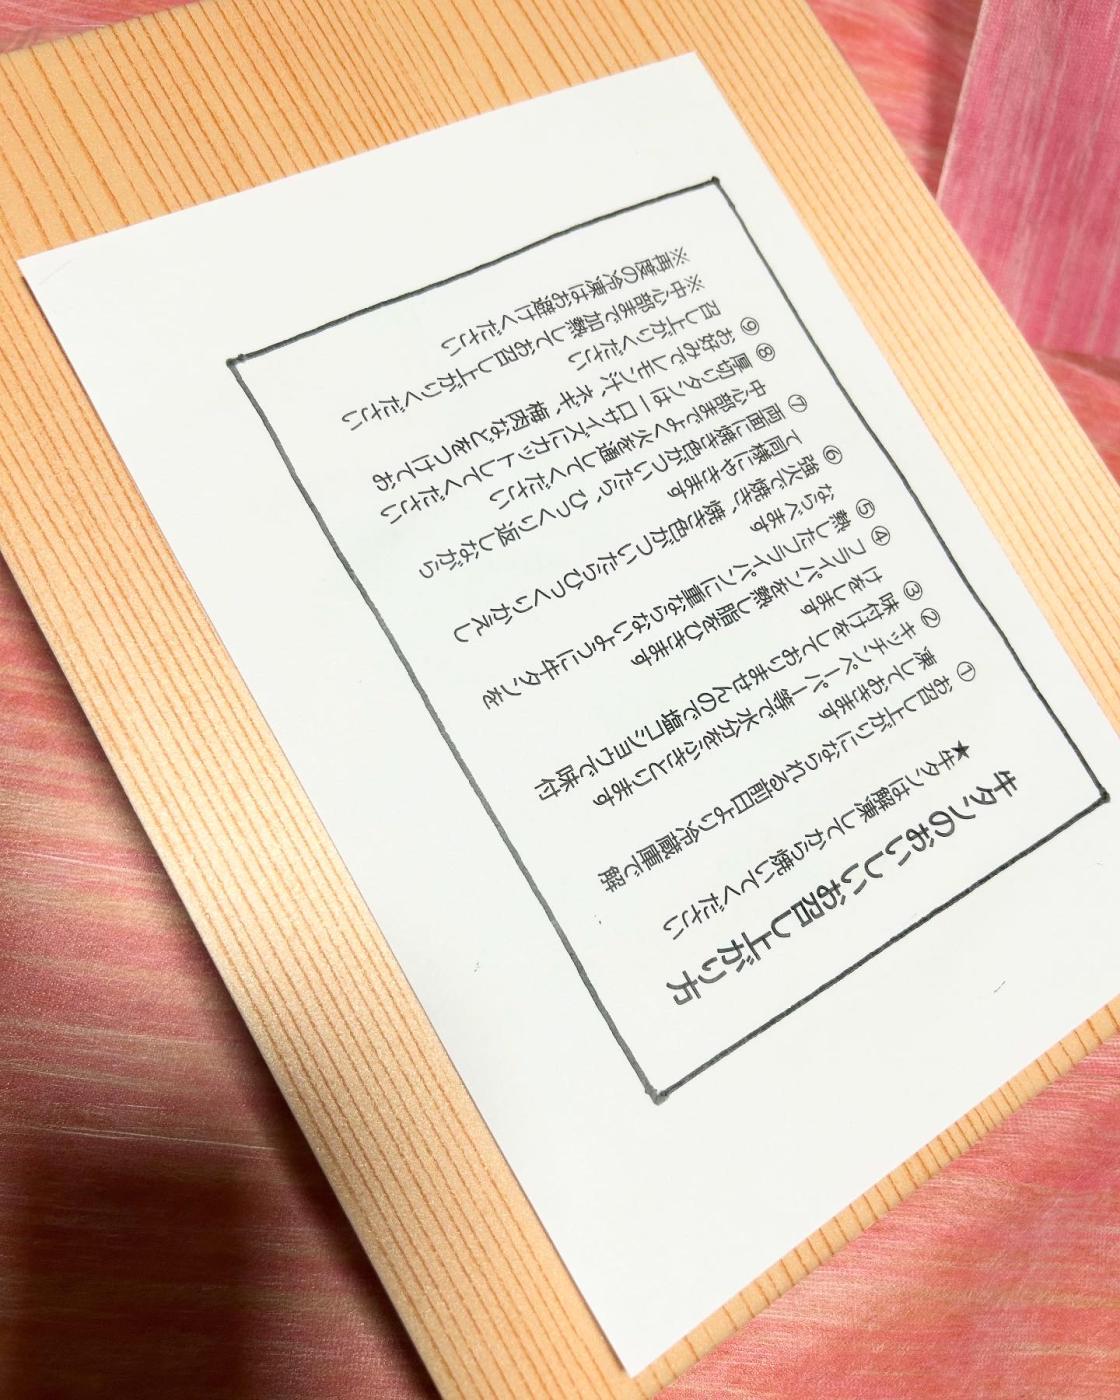 牛タンのおいしいお召し上がり方
★牛タンは解凍してから焼いてください
①お召し上がりになられる前日より冷蔵庫で解
凍しておきます
②キッチンペーパー等で水分をふきとります
③味付けをしておりませんので塩コショウで味付
けをします
④フライパンを熱し脂をひきます
⑤熱したフライパンに重ならないように牛タンを
ならべます
⑥強火で焼き、焼き色がついたらひっくりかえし
て同様にやきます
⑦両面に焼き色がついたら、ひっくり返しながら
中心部までよく火を通してください
⑧厚切りタンは一口サイズにカットしてください
⑨お好みでレモン汁、ネギ、梅肉などをつけてお
召し上がりください
※中心部まで加熱してお召し上がりください
※再度の冷凍はお避けください